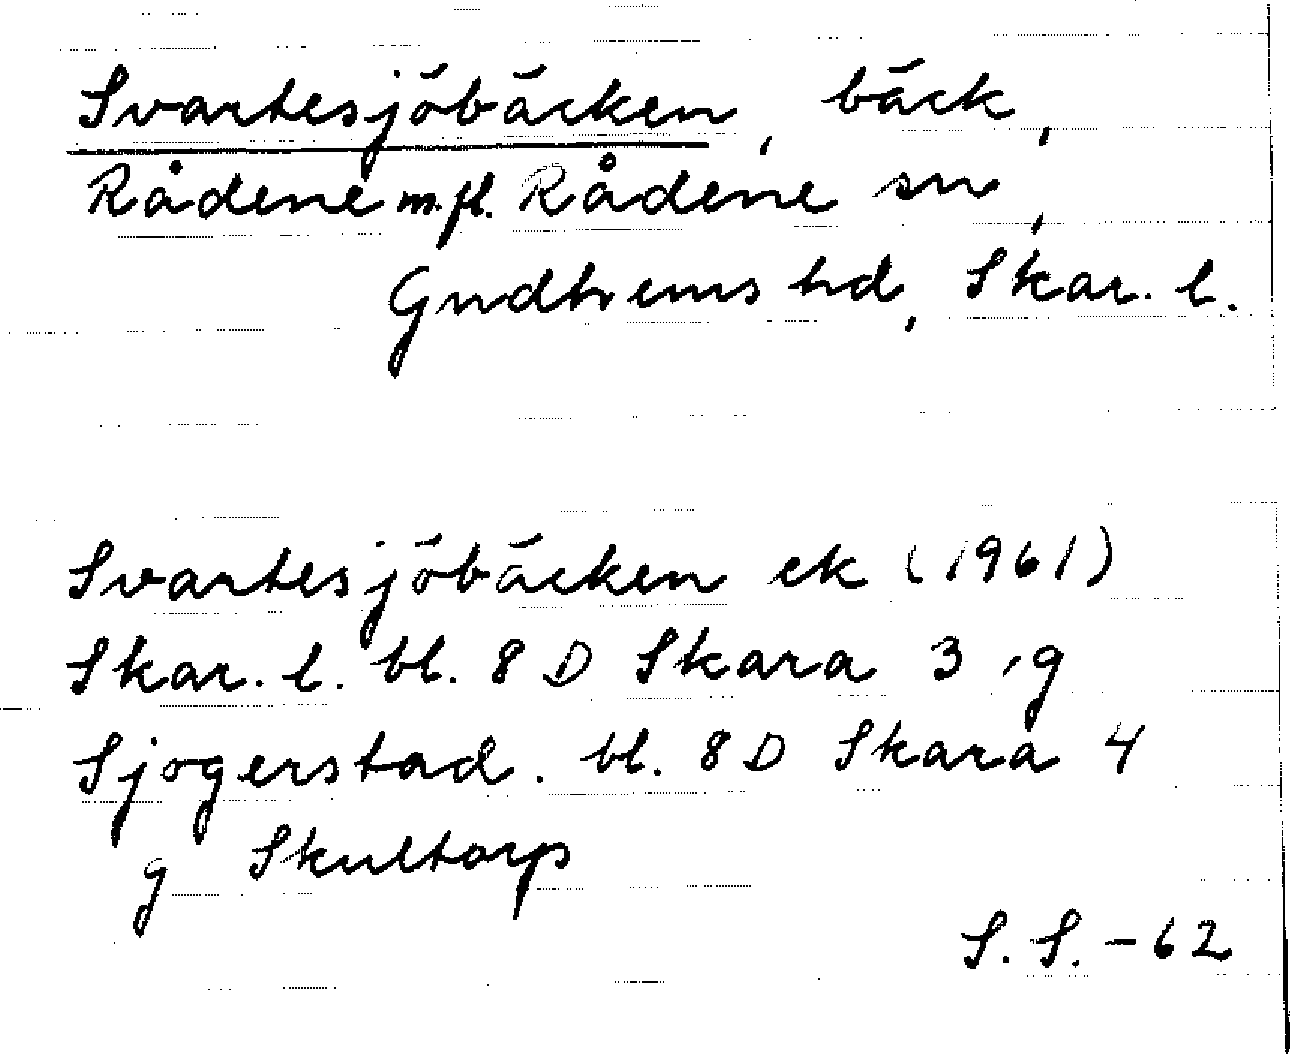 Svartesjöbäcken, bäck,
Rådene m.fl. Rådene sn,
Gudhems hd, Skar. l.
Svartesjöbäcken ek (1961)
Skar. l. bl. 8 D Skara 3 g
Sjogerstad. bl. 8 D Skara 4
g Skultorp
S. S. - 62